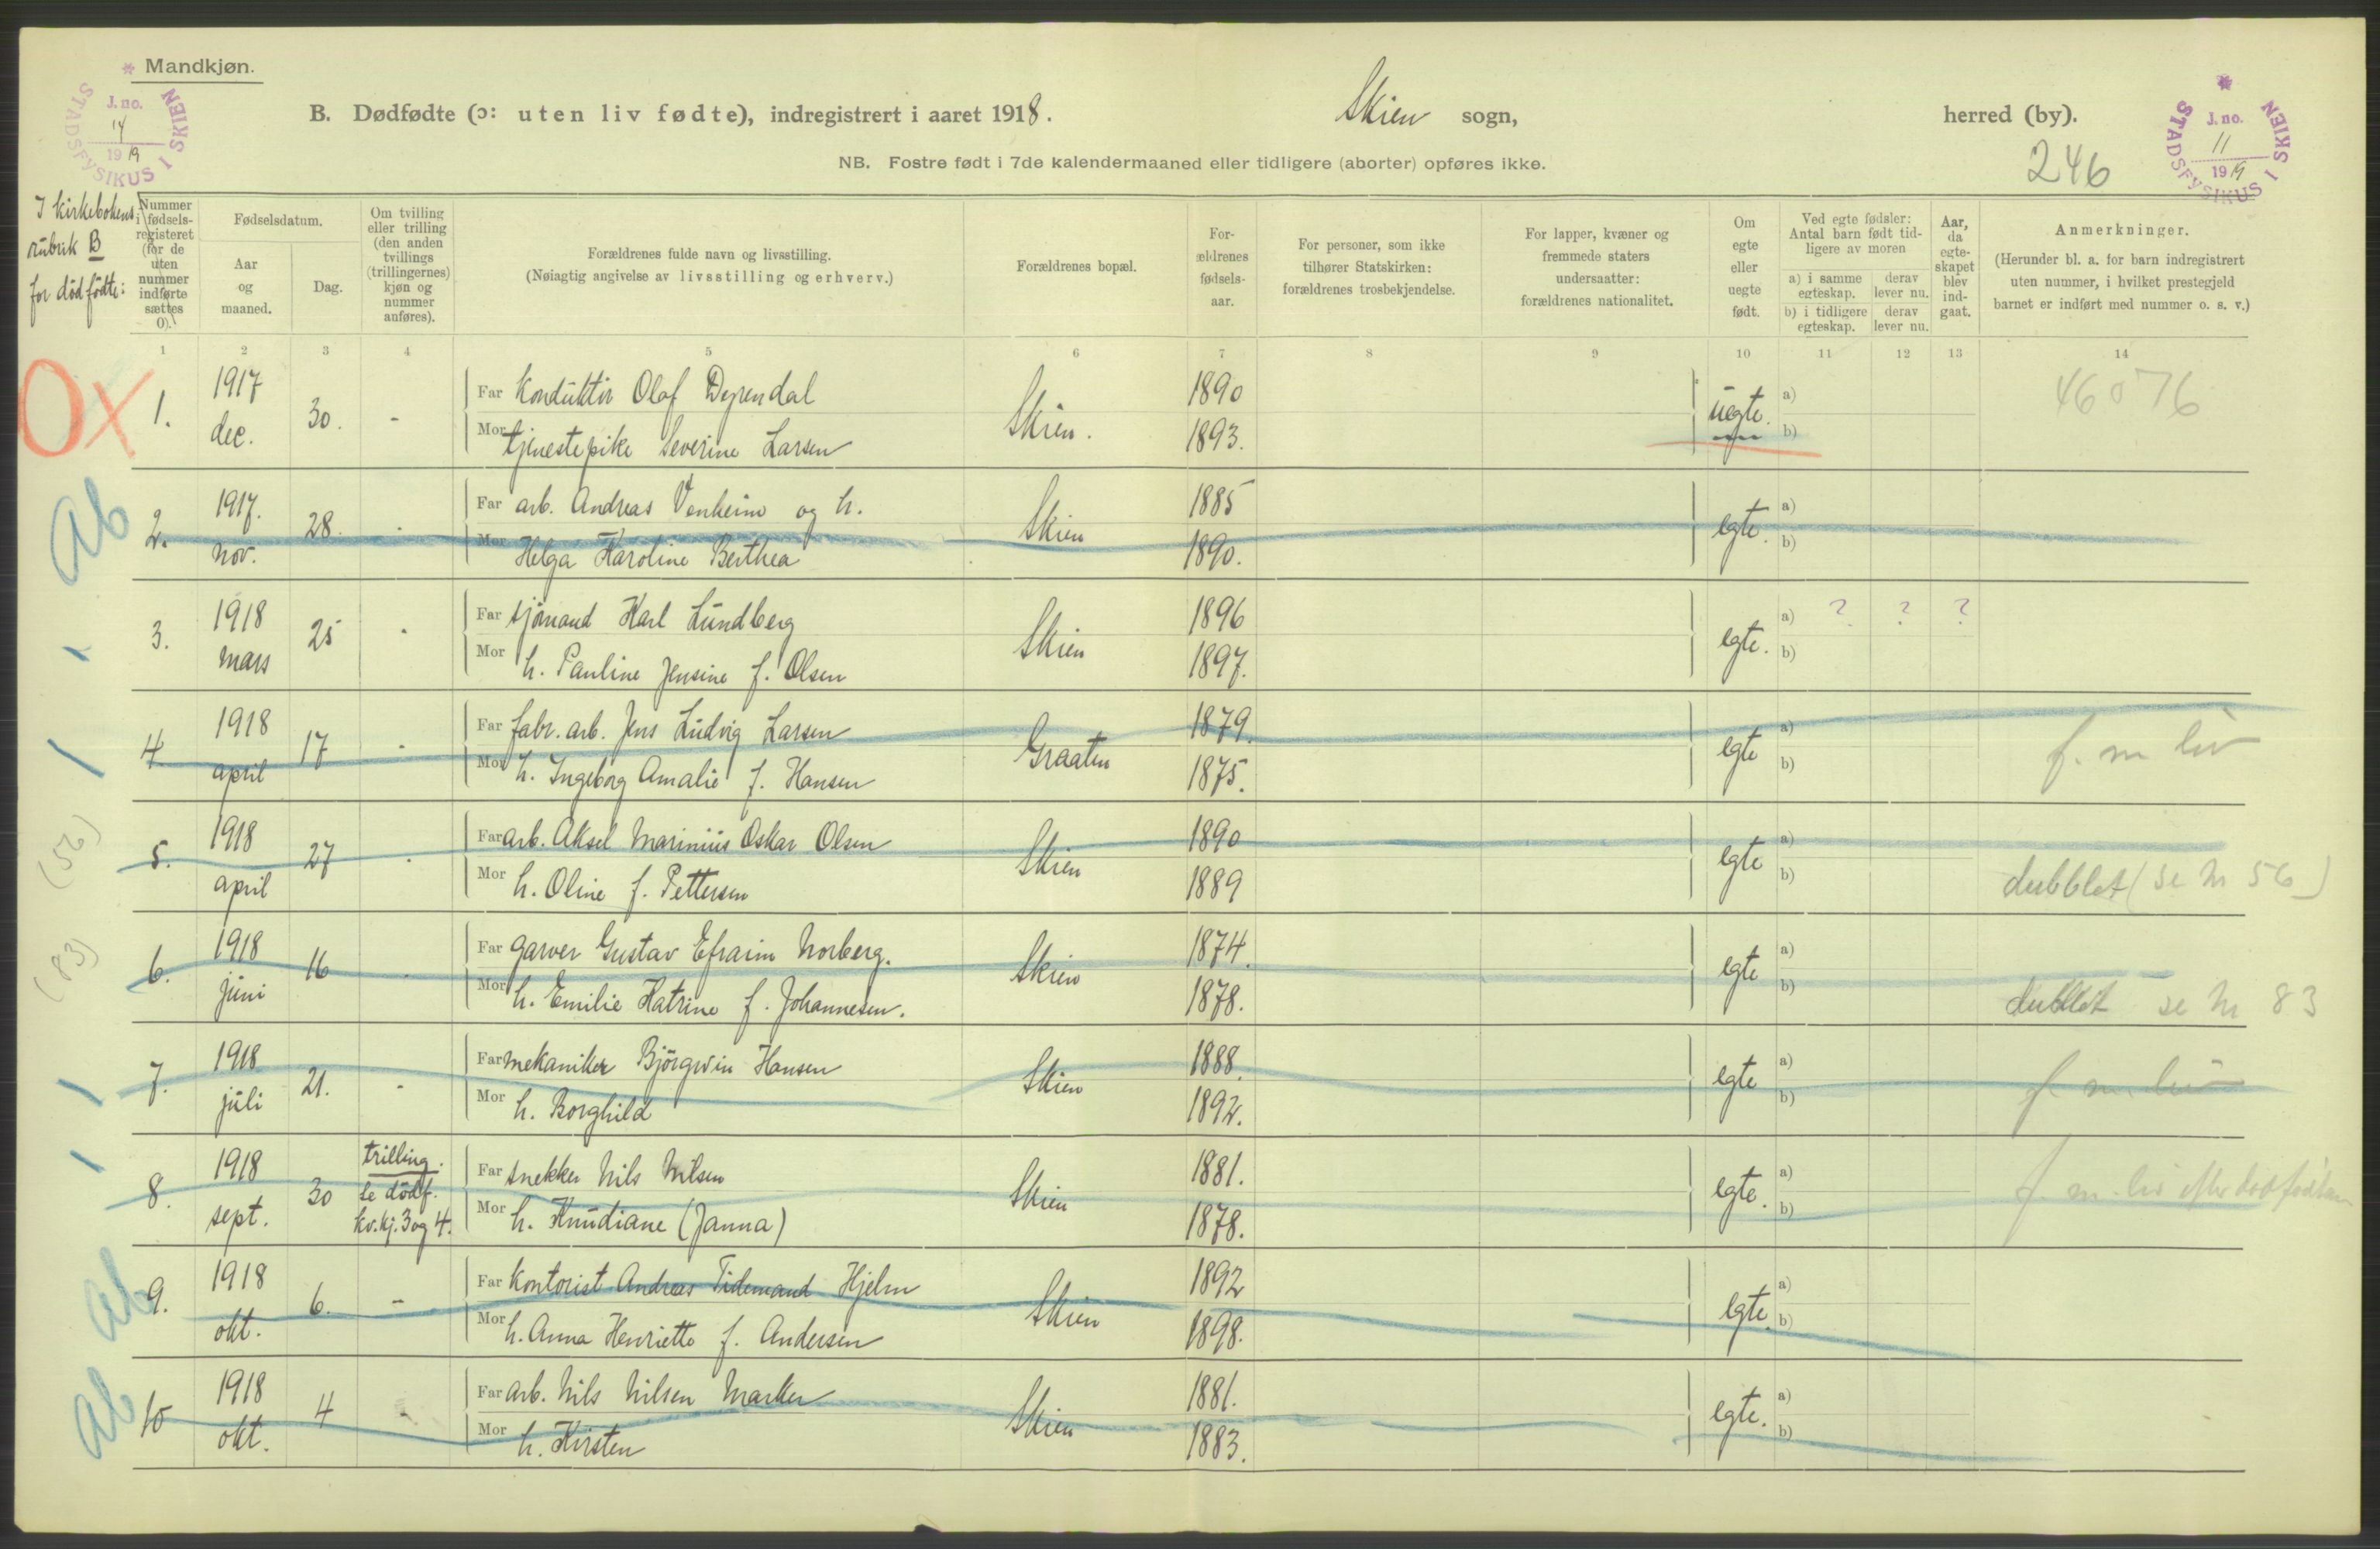 Mandkjøn.
STADSFYSIKUS I SKIEN
J. no.
14
1919
B. Dødfødte (ɔ: uten liv fødte), indregistrert i aaret 1918. Skien sogn, herred (by).
NB. Fostre født i 7de kalendermaaned eller tidligere (aborter) opføres ikke.
246
STADSFYSIKUS I SKIEN
J. no.
11
1919
I kirkebokens
rubrik B
for dødfødte:
Nummer i fødselsregisteret (for de uten nummer indførte sættes 0).
Fødselsdatum.
Aar og maaned.
Dag.
Om tvilling eller trilling (den anden tvillings (trillingernes) kjøn og nummer anføres).
Forældrenes fulde navn og livsstilling.
(Nøiagtig angivelse av livsstilling og erhverv.)
Forældrenes bopæl.
Forældrenes fødselsaar.
For personer, som ikke tilhører Statskirken: forældrenes trosbekjendelse.
For lapper, kvæner og fremmede staters undersaatter: forældrenes nationalitet.
Om egte eller uegte født.
Ved egte fødsler: Antal barn født tidligere av moren
a) i samme egteskap. derav lever nu.
b) i tidligere egteskap. derav lever nu.
Aar, da egteskapet blev indgaat.
Anmerkninger.
(Herunder bl. a. for barn indregistrert uten nummer, i hvilket prestegjeld barnet er indført med nummer o. s. v.)
1 2 3 4 5 6 7 8 9 10 11 12 13 14
OX 1. 1917 dec. 30. - Far Konduktør Olaf Dyrendal Skien. 1890 uegte. a) 46076
Mor tjenestepike Severine Larsen 1893. b)
ab 2. 1917. nov. 28. - Far arb. Andreas Venheim og h. Skien 1885 egte. a)
Mor Helga Karoline Berthea 1890. b)
3. 1918 mars 25 - Far sjømand Karl Lundberg Skien 1896 egte. a) ? ? ?
Mor h. Pauline Jensine f. Olsen 1897. b)
4. 1918 april 17 - Far fabr. arb. Jens Ludvig Larsen Graaten 1879. egte a) f. m liv
Mor h. Ingeborg Amalie f. Hansen 1875. b)
(56) 5. 1918 april 27 - Far arb. Aksel Marinius Oskar Olsen Skien 1890 egte a) dubblet (se nr 56)
Mor h. Oline f. Pettersen 1889 b)
(83) 6. 1918 juni 16 - Far garver Gustav Efraim Norberg. Skien 1874. egte a) dubblet se nr 83
Mor h. Emilie Katrine f. Johannesen. 1878. b)
7. 1918 juli 21. - Far mekaniker Bjørgvin Hansen Skien 1888. egte a) f. m. liv
Mor h. Borghild 1892. b)
8. 1918 sept. 30 trilling. se dødf. kv.kj. 3 og 4. Far snekker Nils Nilsen Skien 1881. egte. a) f. m. liv efter
Mor h. Knudiane (Janna) 1878. b)
ab 9. 1918 okt. 6. - Far Kontorist Andreas Tidemand Hjelm Skien 1892 egte. a)
Mor h. Anna Henriette f. Andersen 1898. b)
ab 10 1918 okt. 4 - Far arb. Nils Nilsen Marker Skien 1881. egte. a)
Mor h. Kirsten 1883. b)